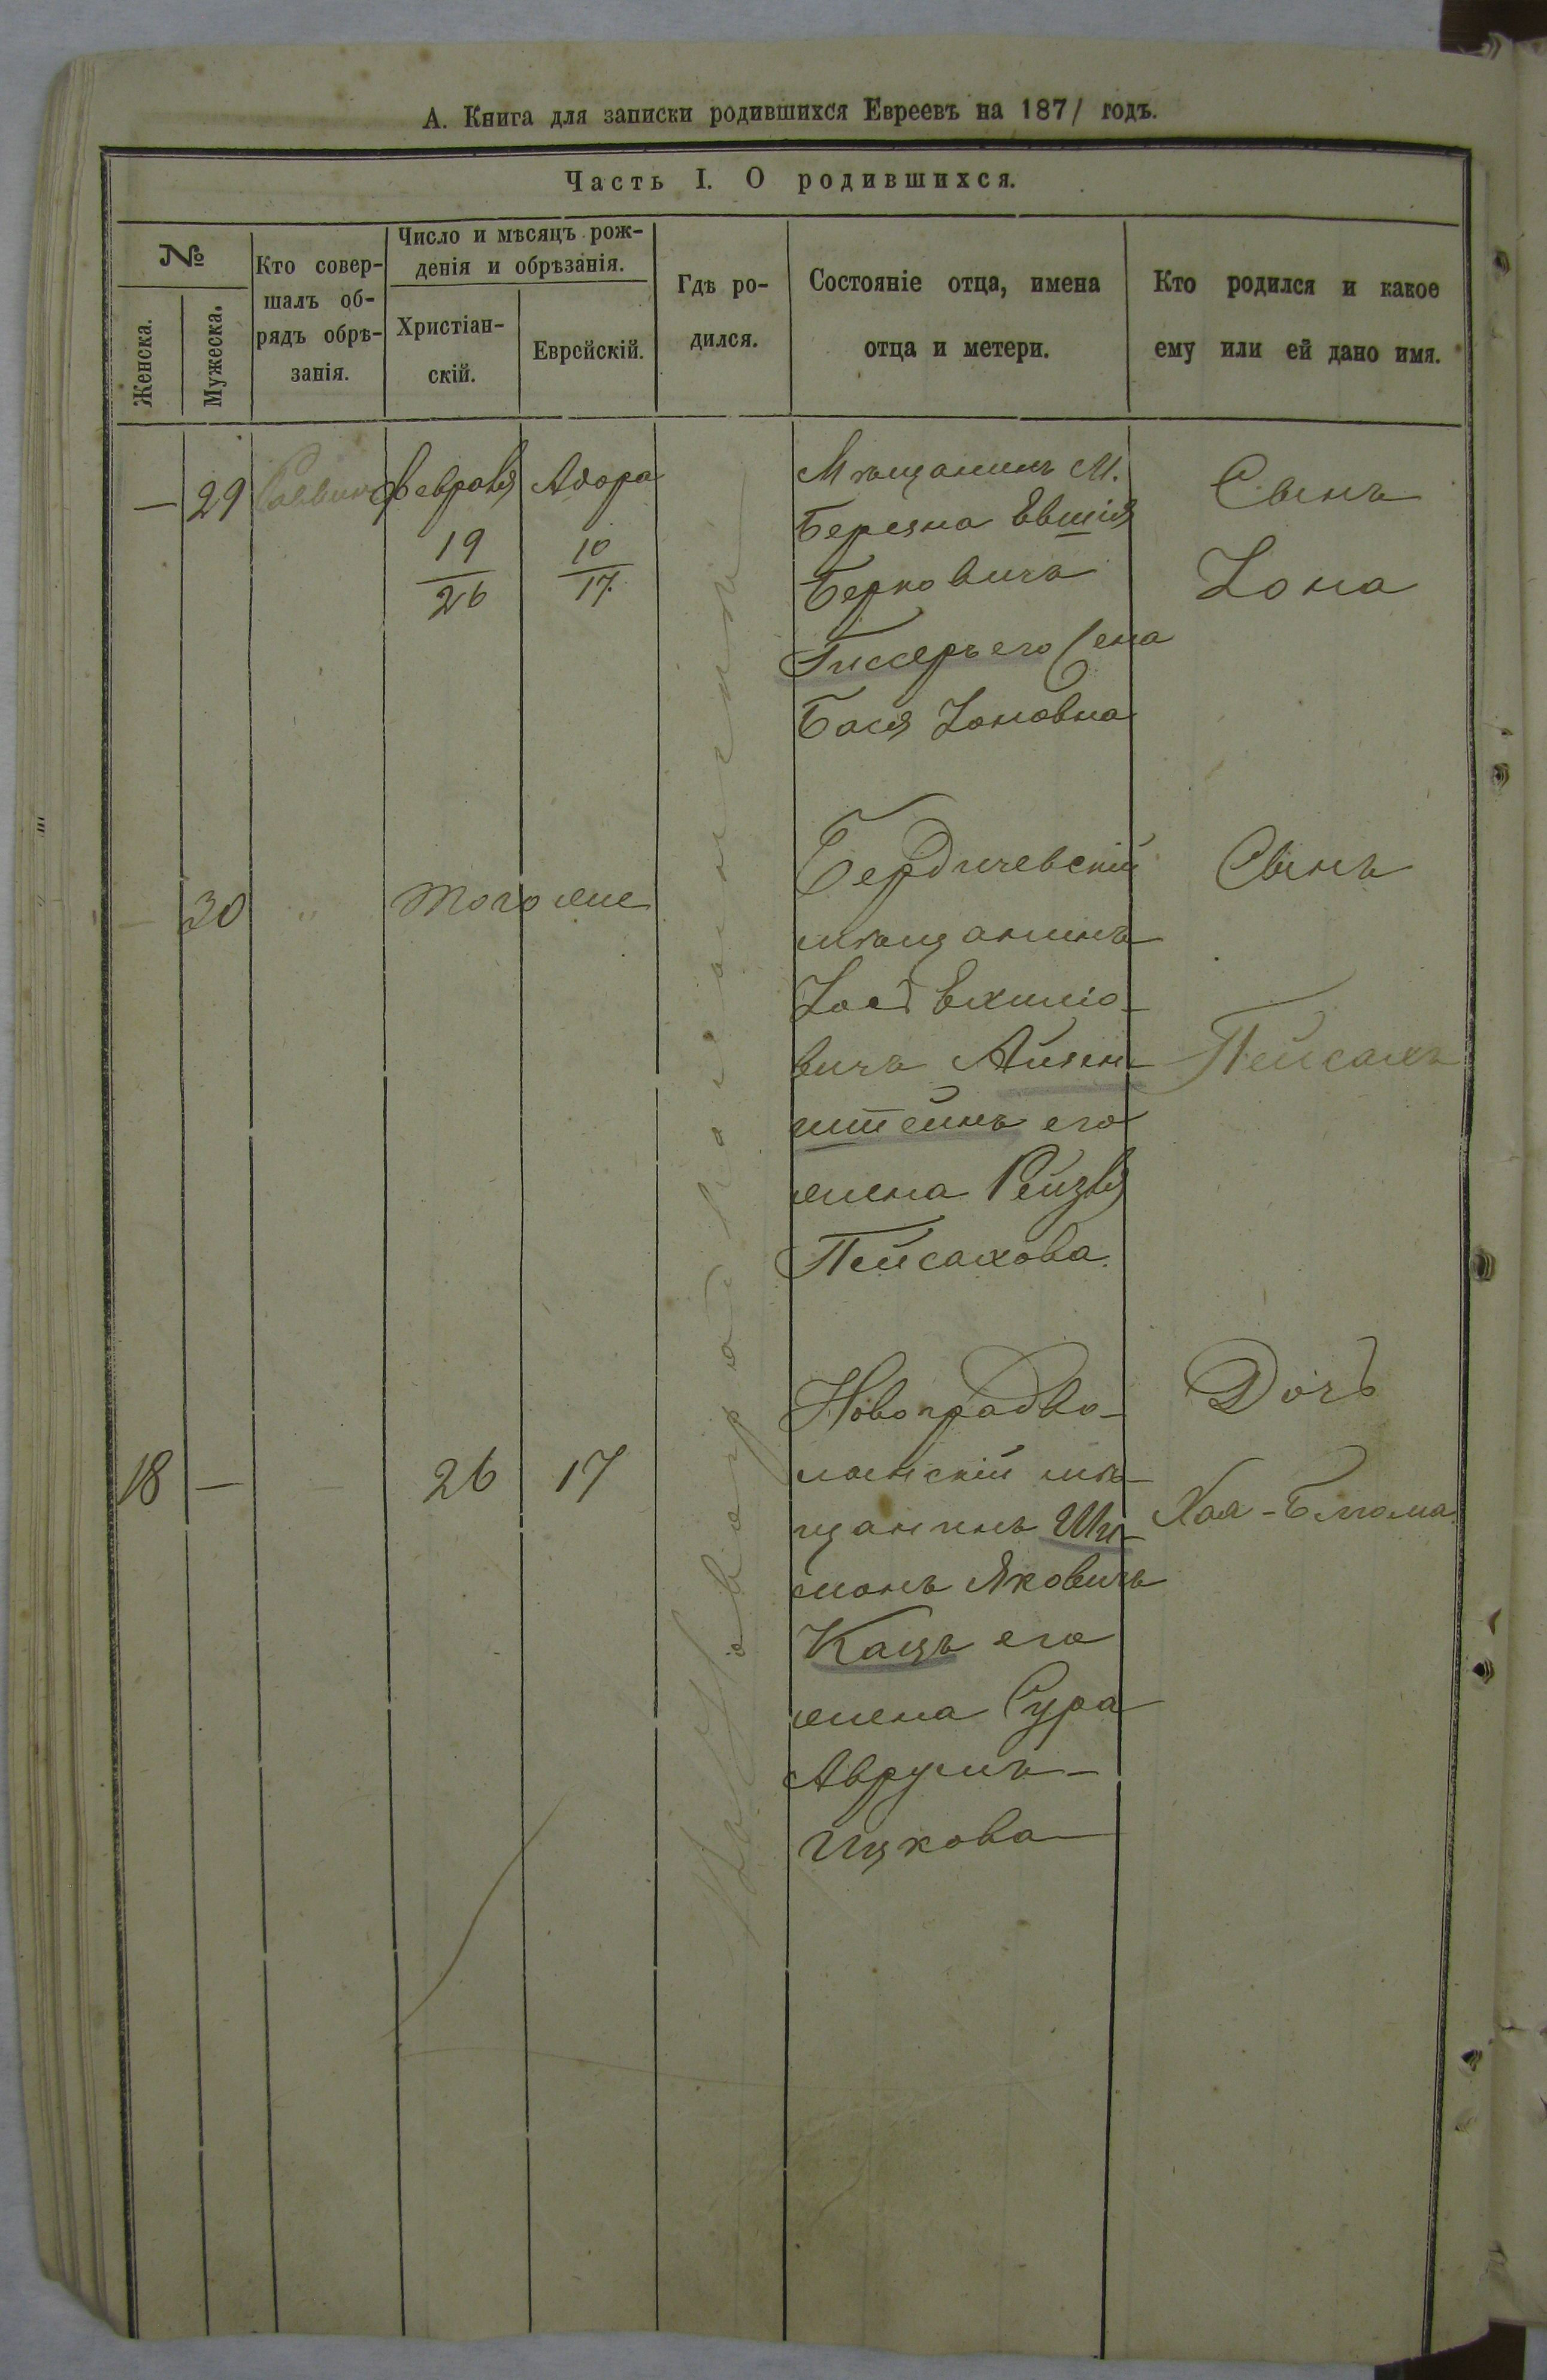 А. Книга для записки родившихся Евреевъ на 1871 годъ.
Часть I. О родившихся.
№
Женска.
Мужеска.
Кто совер-
шалъ об-
рядъ обрѣ-
занія.
Число и мѣсяцъ рож-
денія и обрѣзанія.
Христіан-
скій.
Еврейскій.
Гдѣ ро-
дился.
Состояніе отца, имена
отца и метери.
Кто родился и какое
ему или ей дано имя.
— 29 Раввинъ
Февраля
19
26
Адара
10
17.
Мѣщанинъ М.
Березна Евшія
Берковичъ
его жена
Бася Іоновна
Сынъ
Іона
30 " того же
Бердичевскій
мѣщанинъ
Іось
вичъ Айзен-
штейнъ его
жена Рейзля
Пейсахова.
Сынъ
Пейсахъ
18 — 26 17
Новоградво-
лынскій мѣ-
щанинъ Ши-
монъ Яковичъ
Кацъ его
жена Сура
Аврумъ-
Ицкова
Дочь
Хая-Блюма